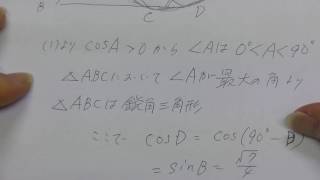 B
C D
(1)より cosA>0から ∠Aは 0°<A<90°
△ABCにおいて ∠Aが最大の角より
△ABCは鋭角三角形
ここで cosD = cos(90°-B)
= sinB = √7/4